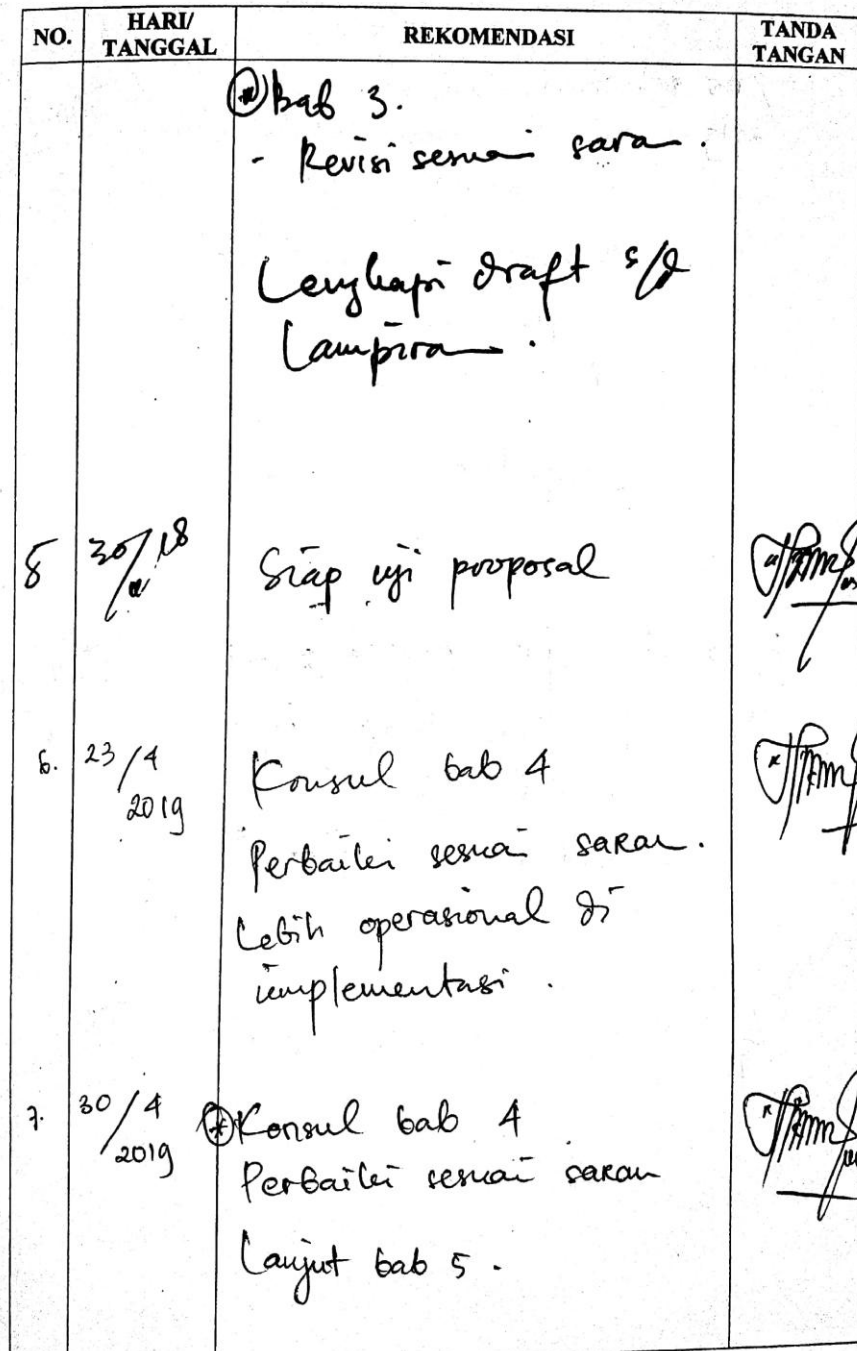 NO. HARI/ TANGGAL REKOMENDASI TANDA TANGAN
Bab 3.
- Revisi sesuai saran.
Lengkapi draft s/d
Lampiran.
5 30/ 18 Siap uji proposal
6. 23/4 2019 Konsul bab 4
Perbaiki sesuai saran.
Lebih operasional di
implementasi.
7. 30/4 2019 * Konsul bab 4
Perbaiki sesuai saran
Lanjut bab 5.